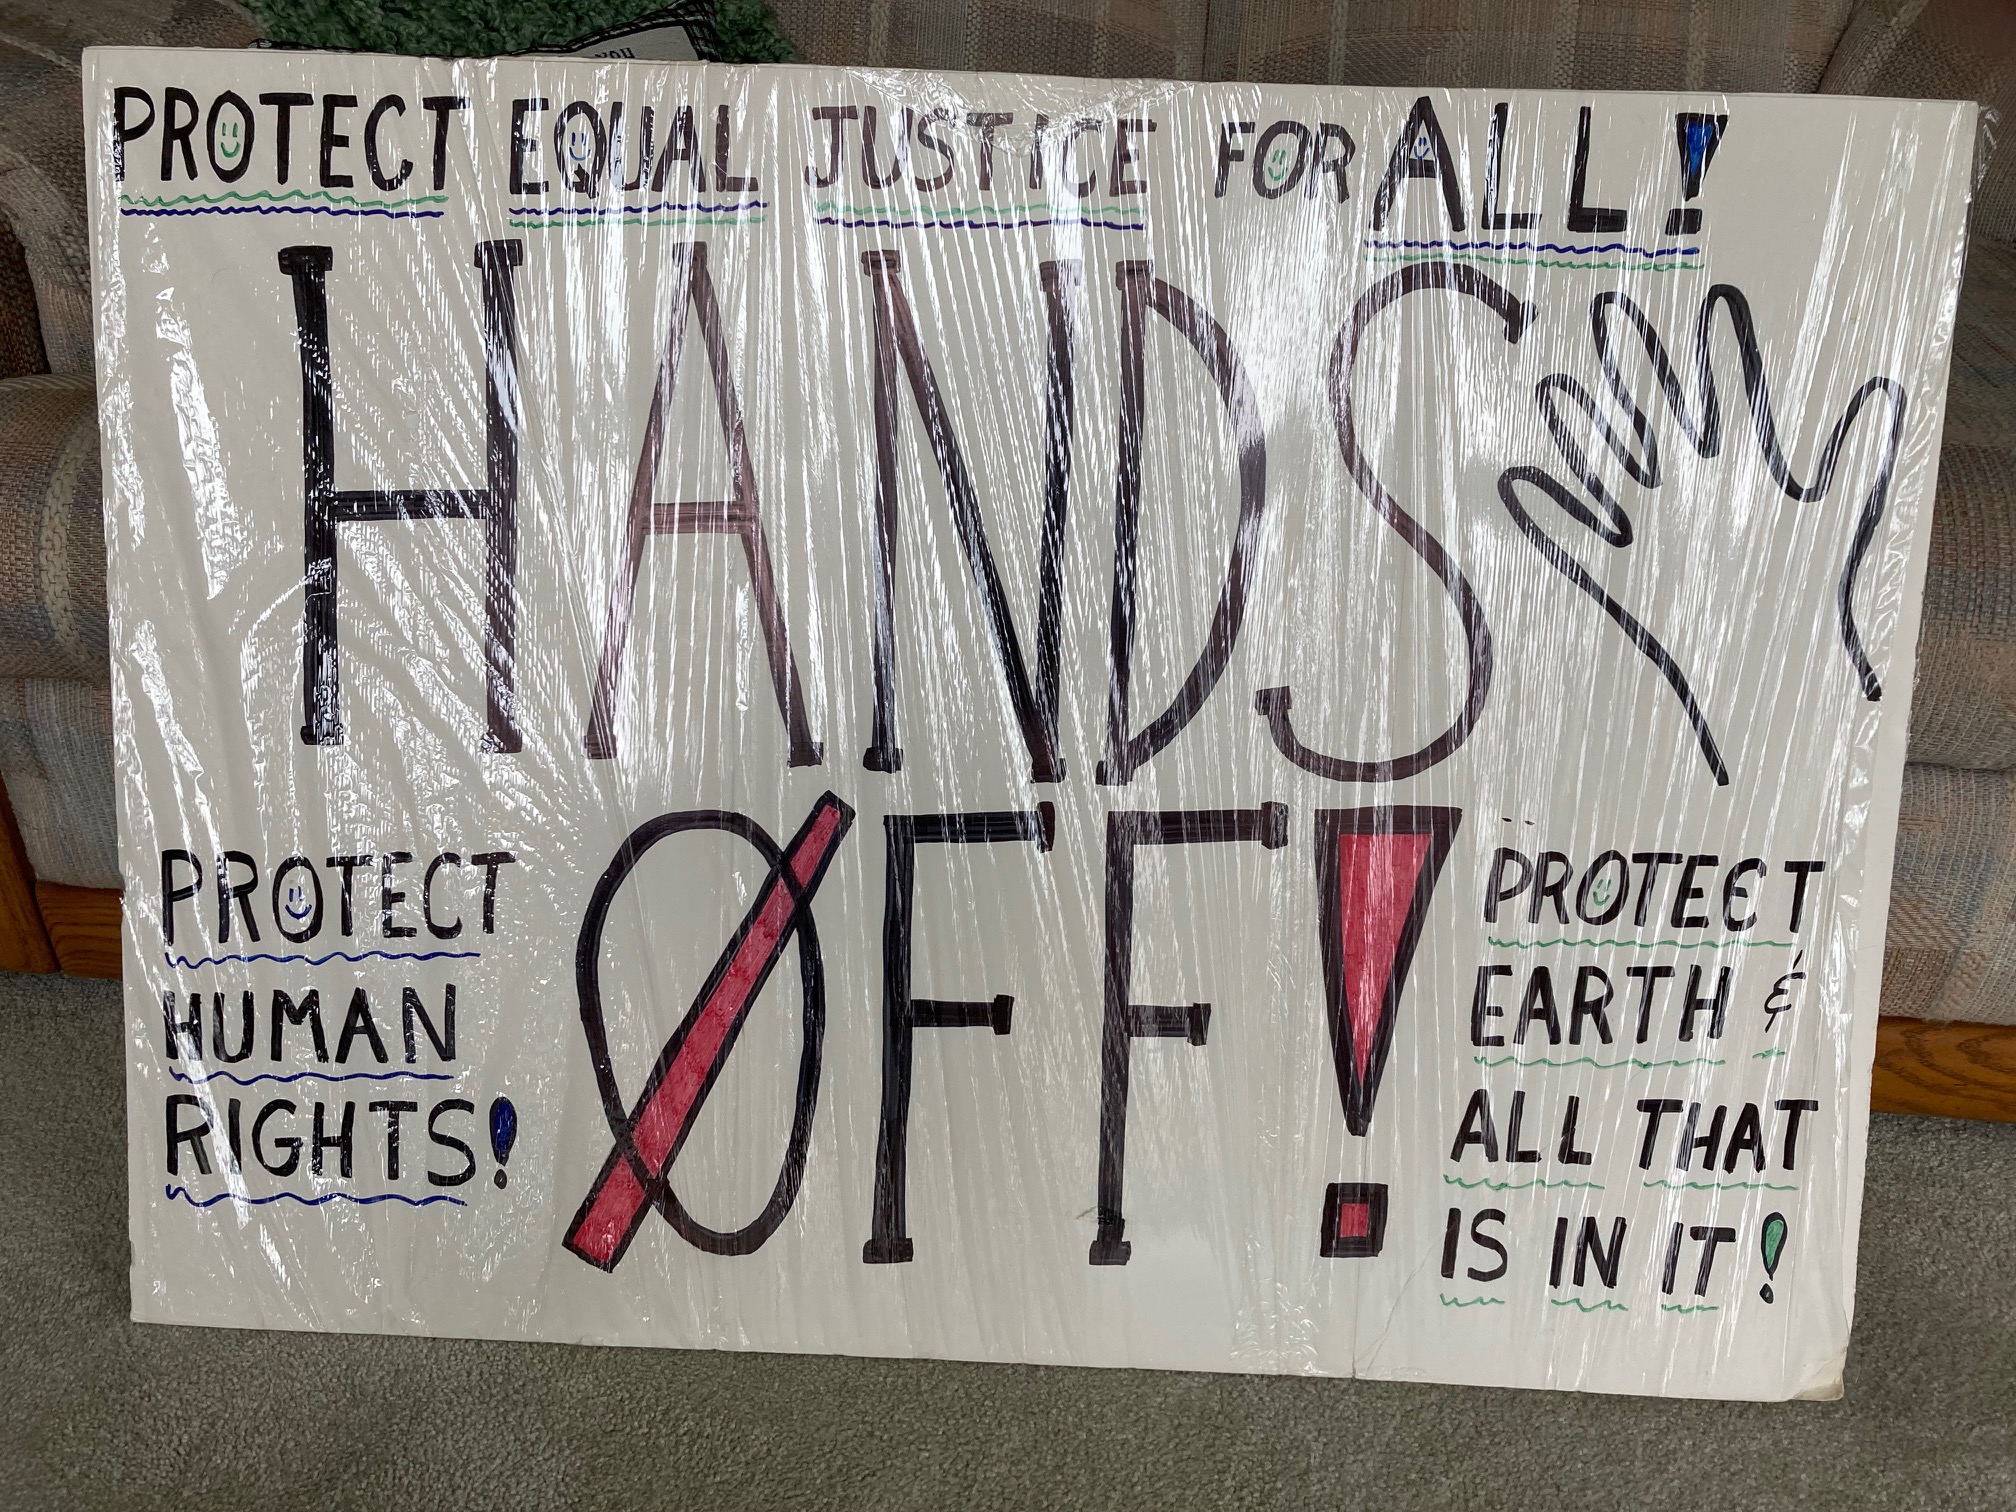 PROTECT EQUAL JUSTICE FOR ALL!
HANDS
OFF!
PROTECT
HUMAN
RIGHTS!
PROTECT
EARTH &
ALL THAT
IS IN IT!